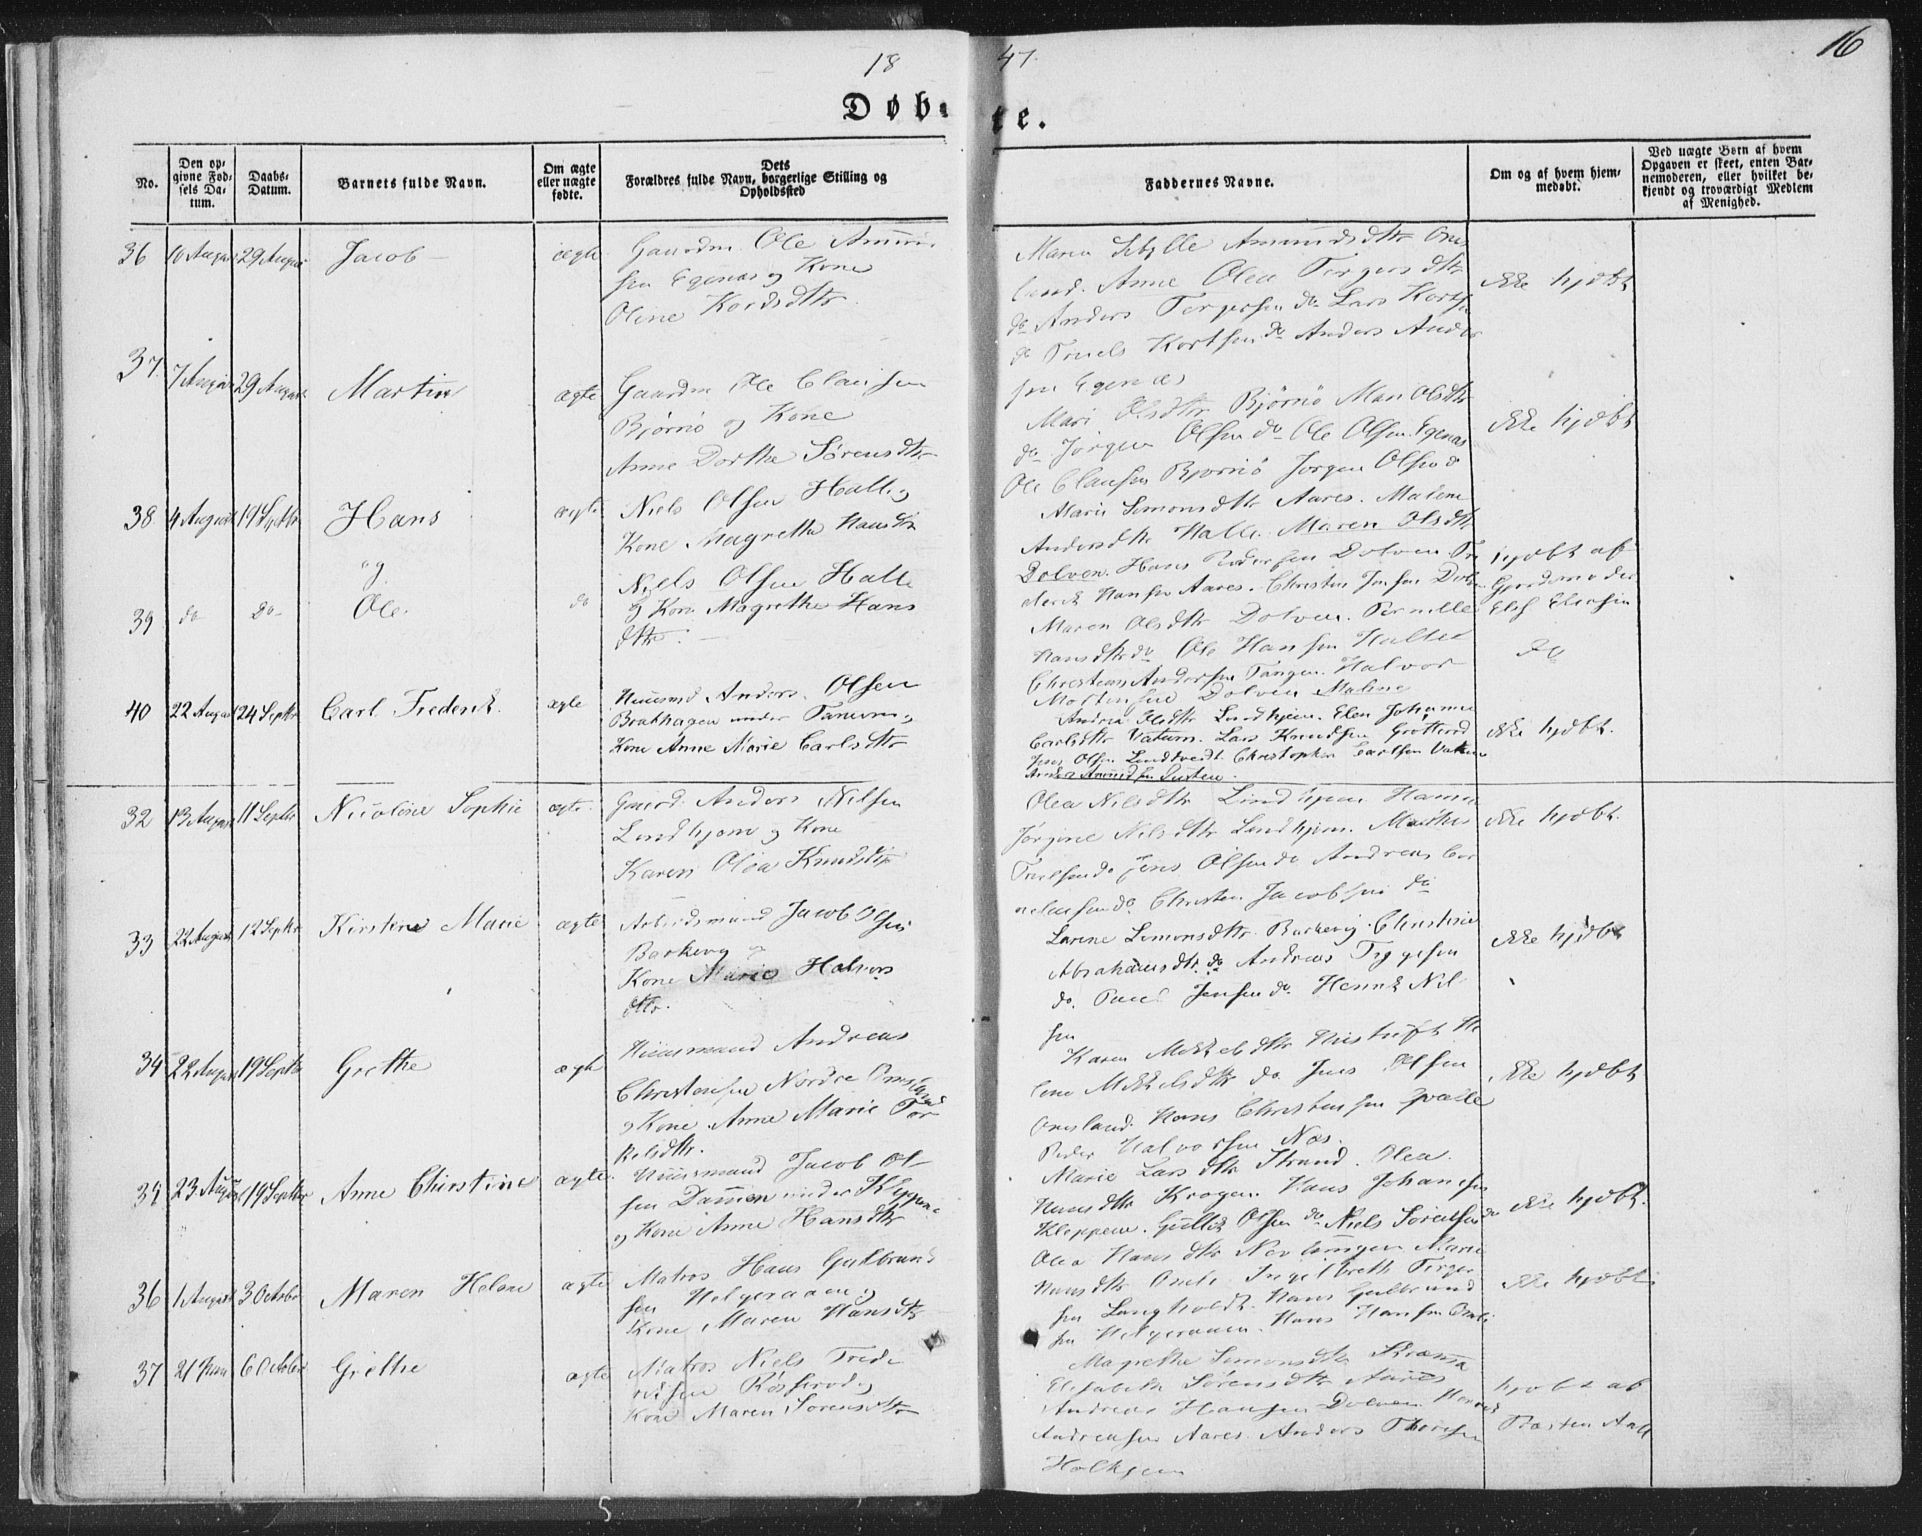 18 47.
16
Døb- te.
No.
Den opgivne Fødsels Datum.
Daabs-Datum.
Barnets fulde Navn.
Om ægte eller uægte fødte.
Dets Forældres fulde Navn, borgerlige Stilling og Opholdssted
Faddernes Navne.
Om og af hvem hjemmedøbt.
Ved uægte Børn af hvem Opgaven er skeet, enten Barnemoderen, eller hvilket bekjendt og troværdigt Medlem af Menighed.
36 10 August 29 August Jacob ægte
Gaardm. Ole
sen Egenæs og Kone
Oline Kordsdtr.
Maren Amundsdtr
Anne Olea Torgersdtr
do Anders Torgersen do Lars Korts
do Truels Kortsen do Anders Ander
sen Egenæs
ikke hjdbt
37. 7 August 29 August Martin ægte
Gaardm Ole Clausen
Bjørnø og Kone
Anne Dorthe Sørensdtr
Mari Olsdtr Bjørnø Mari Olsdtr
do Jørgen Olsen do Ole Olsen Egenæs
Ole Clausen Bjørnø Jørgen Olsen do
ikke hjdbt
38 4 August 19 Septbr Hans ægte
Niels Olsen Halle og
Kone Magrethe Hansdtr
Maria Simonsdtr Aares. Malene
Andersdtr Halle. Maren Olsdtr
Dolven. Hans Pedersen Dolven
Hansen Aares. Christen Jensen Dolven
hjdbt af
Gjordemoder
og
39 do do Ole. do
Niels Olsen Halle
og Kone Magrethe Hans
dtr.
Maren Olsdtr Dolven. Pernille
Hansdtr do Ole Hansen Halle
Christen Andersen Tangen. Halvor
Mortensen Dolven Malene
do
40 22 August 24 Septbr Carl Frederik ægte
Huusmd Anders Olsen
Brathagen under Tanum og
Kone Anne Marie Carlsdtr
Andrea Olsdtr Lindhjem. Elen Johanne
Carlsdtr Vatum. Lars Knudsen Grøtterød
Jens Olsen Lindtvedt Christopher Carlsen Vatum
Anders
ikke hjdbt.
32 13 August 11 Septbr Nicoline Sophie ægte
Gaard. Anders Nilsen
Lindhjem og Kone
Karen Olea Knudsdtr
Olea Nilsdtr Lindhjem Hanna
Jørgine Nilsdtr Lindhjem. Mathis
Truelsen do Jens Olsen do Andreas Cor
nelausen do. Christen Jacobsen do
ikke hjdbt.
33 22 August 12 Septbr Kirstine Marie ægte
Arbeidsmand Jacob Olsen
Barkevig og
Kone Marie Halvors
dtr.
Larine Simonsdtr Barkevig. Christine
Abrahamsdtr do Andreas Tryggesen
do. Paul Jensen do. Henrik Nil
sen
ikke hjdbt
34 22 August 19 Septbr Grethe ægte
Huusmand Andreas
Christensen Nordre Omsland
og Kone Anne Marie Tor
kelsdtr.
Karen Mikkelsdtr He
lene Mikkelsdtr do Jens Olsen
Omsland. Hans Christensen
Peder Halvorsen Næs.
ikke hjdbt
35 23 August 19 Septbr Anne Christine ægte.
Huusmand Jacob Ol
sen Dammen under Kleppen
og Kone Anne Hansdtr
Marie Larsdtr Strand. Olea
Hansdtr Krogen. Hans Johansen
Kleppen. Gullik Olsen do Niels Sørensen do
ikke hjdbt.
36 1 August 3 October Maren Helene ægte
Matros Hans Gulbrand
sen Helgeraaen og
Kone Maren Hansdtr
Olea Hansdtr Nevlungen Marie
Hansdtr Ingelbreth Torger
sen Langholdt. Hans Gulbrand
sen Helgeraaen. Hans Hansen
ikke hjdbt
37 21 6 October Grethe ægte
Matros Niels Frede
riksen Røsserød og
Kone Maren Sørensdtr
Magrethe Simonsdtr
Elisabeth Sørensdtr Aares
Andreas Hansen Dolven Henrik
Andreasen Aares. Anders Thoresen
hjdbt af
Presten
5